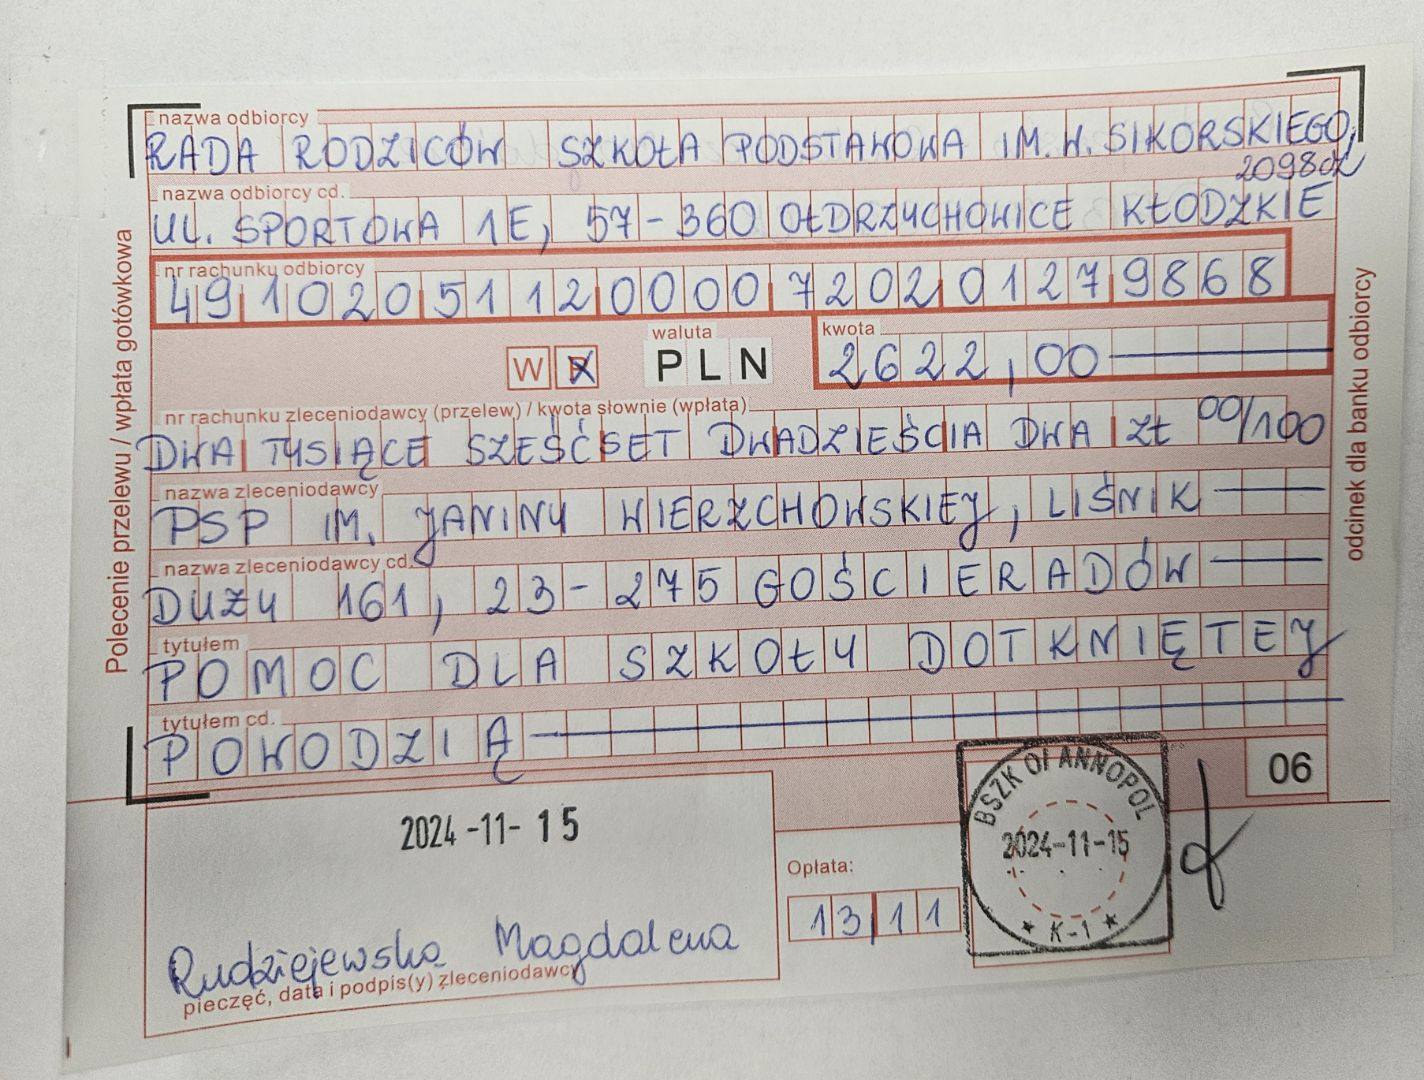 nazwa odbiorcy
RADA RODZICÓW SZKOŁA PODSTAWOWA IM. W. SIKORSKIEGO,
nazwa odbiorcy cd.
UL. SPORTOWA 1E, 57-360 OŁDRZYCHOWICE KŁODZKIE
nr rachunku odbiorcy
49 1020 5112 0000 7202 0127 9868
waluta
kwota
W PLN 2622,00
nr rachunku zleceniodawcy (przelew) / kwota słownie (wpłata)
DWA TYSIĄCE SZEŚĆSET DWADZIEŚCIA DWA ZŁ 00/100
nazwa zleceniodawcy
PSP IM. JANINY WIERZCHOWSKIEJ, LIŚNIK
nazwa zleceniodawcy cd.
DUŻY 161, 23-275 GOŚCIERADÓW
tytułem
POMOC DLA SZKOŁY DOTKNIĘTEJ
tytułem cd.
POWODZIĄ
06
2024-11-15
Opłata:
13,11
Rudziejewska Magdalena
pieczęć, data i podpis(y) zleceniodawcy
BSZK O/ ANNOPOL
2024-11-15
* K-1 *
Polecenie przelewu / wpłata gotówkowa
odcinek dla banku odbiorcy